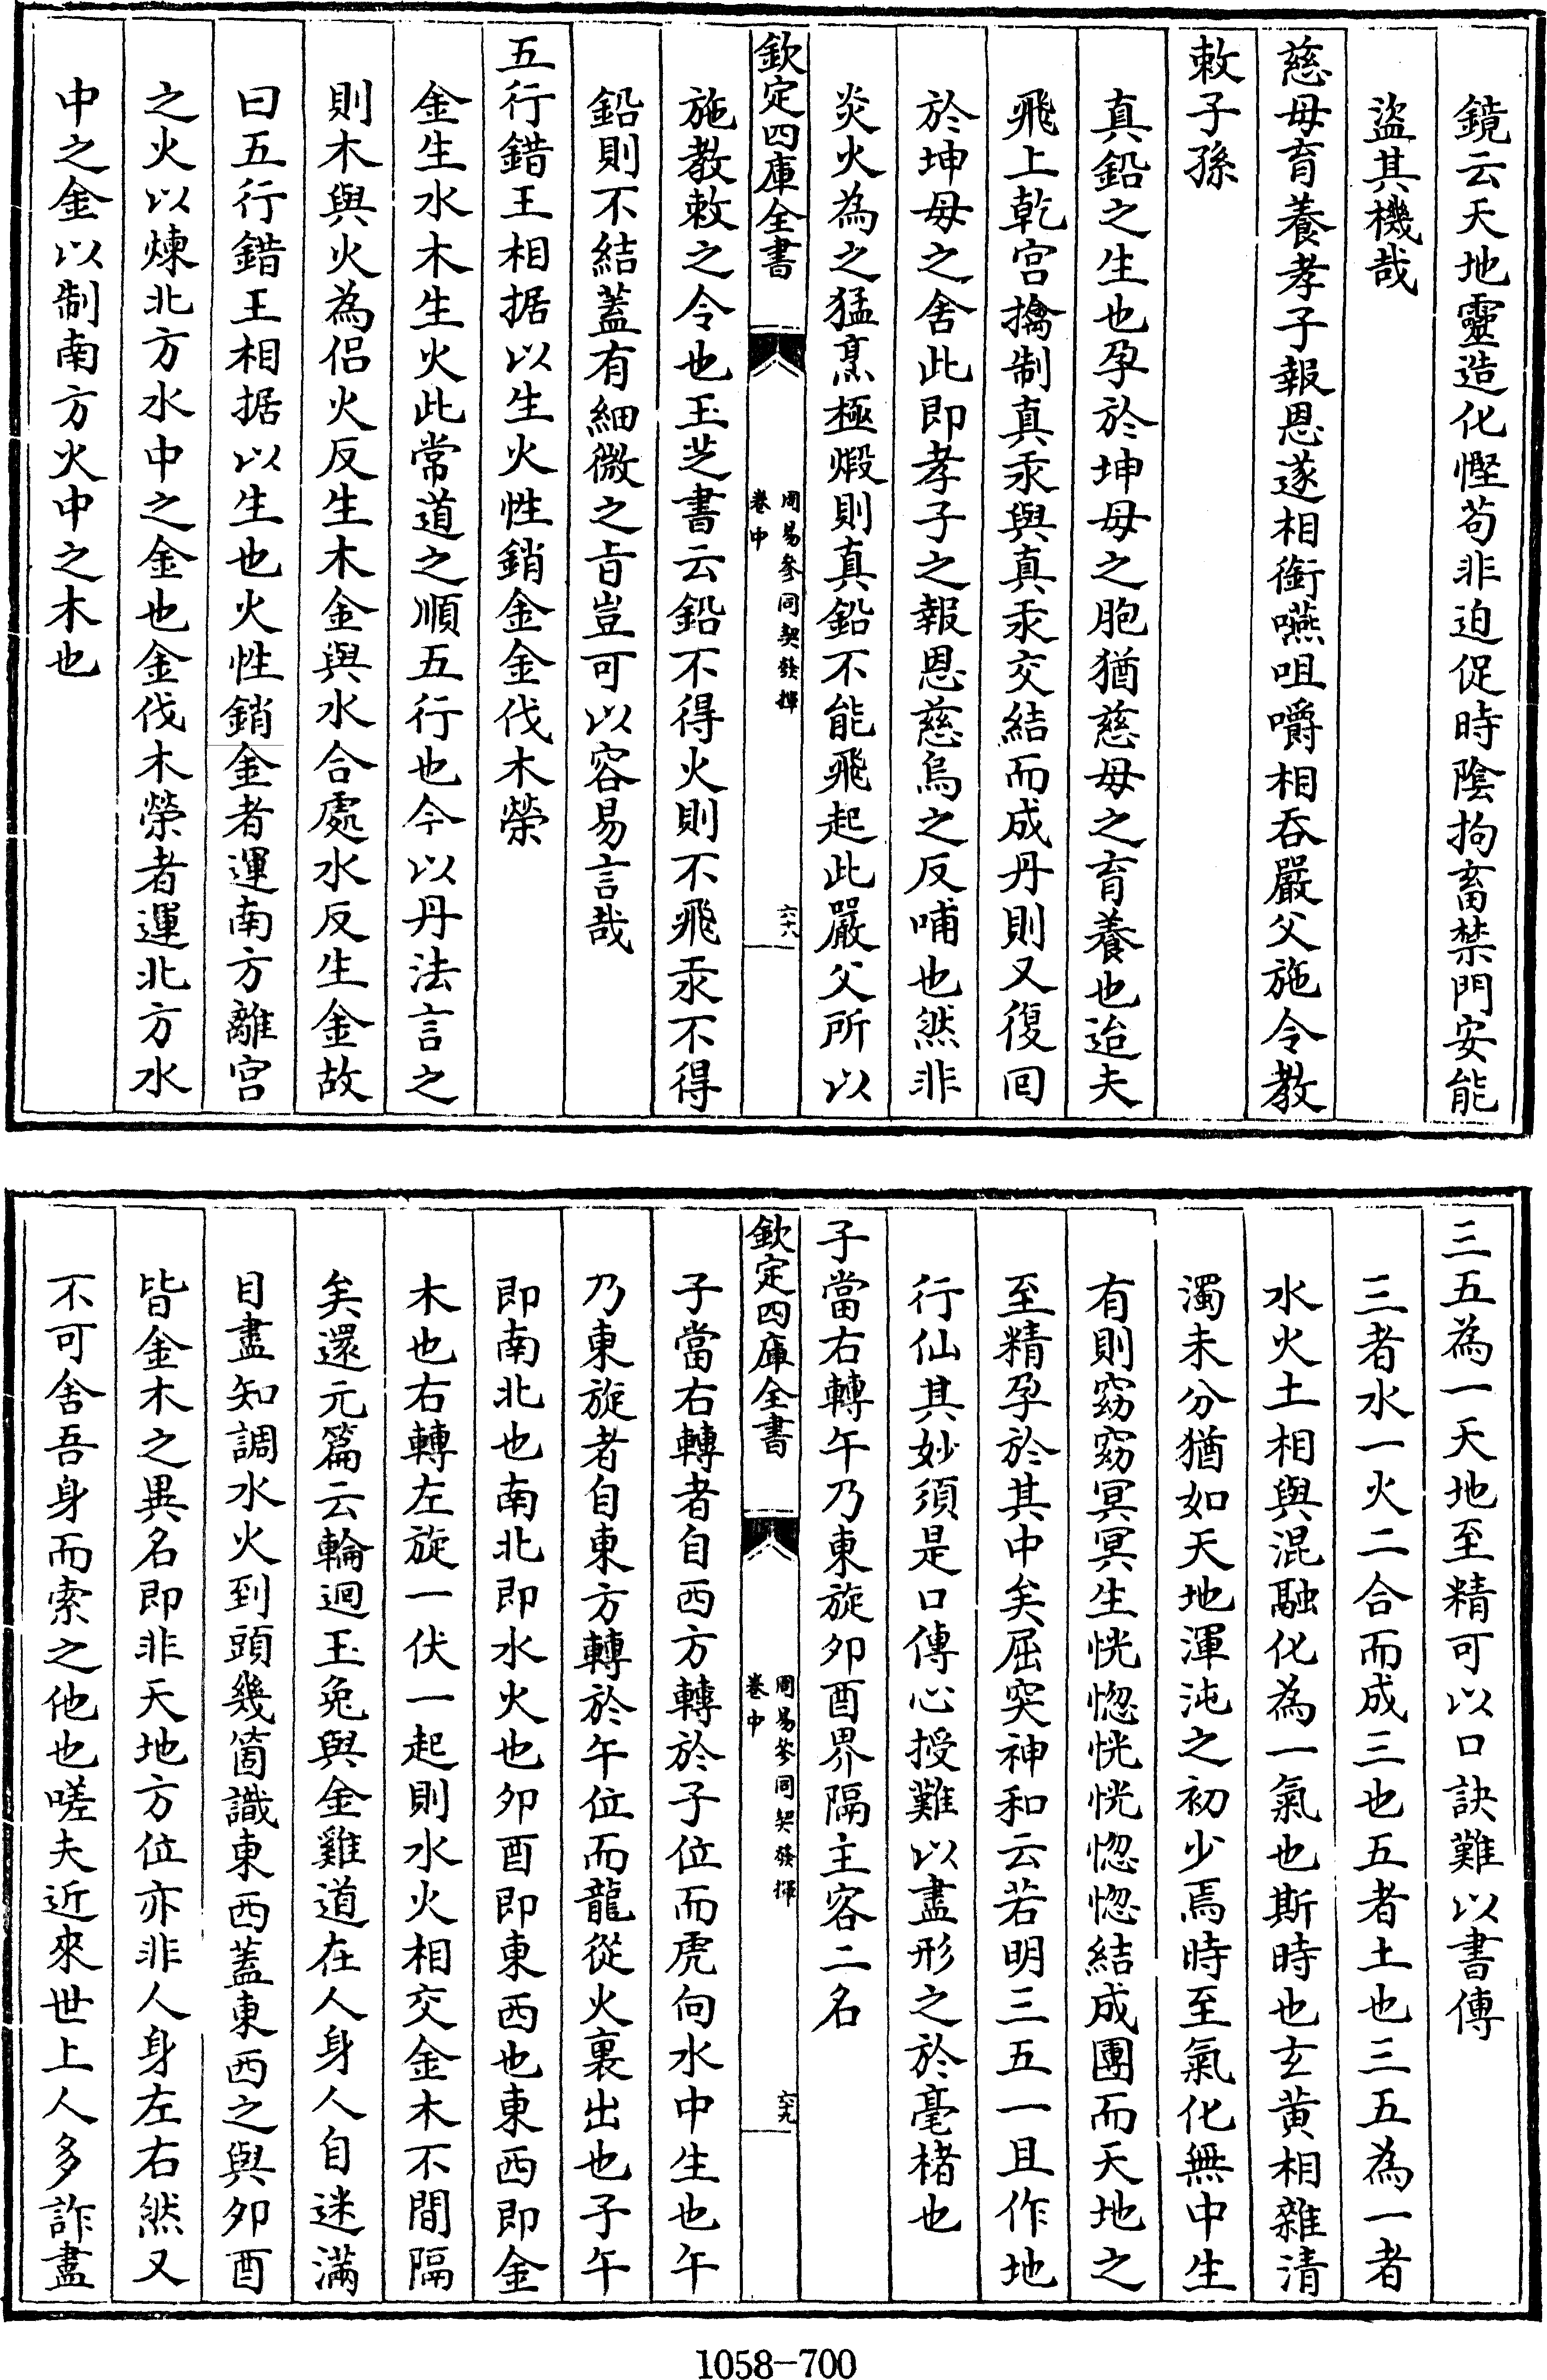 鏡云天地靈造化慳茍非迫促時陰拘畜禁門安能
盜其機哉
慈母育養孝子報恩遂相銜嚥咀嚼相吞嚴父施令教
敕子孫
真鉛之生也孕於坤母之胞猶慈母之育養也迨夫
飛上乾宫擒制真汞與真汞交結而成丹則又復囘
於坤母之舍此即孝子之報恩慈烏之反哺也然非
炎火為之猛烹極煅則真鉛不能飛起此嚴父所以
欽定四庫全書
周易參同契發揮
卷中
六十八
施教敕之令也玉芝書云鉛不得火則不飛汞不得
鉛則不結蓋有細微之旨豈可以容易言哉
五行錯王相据以生火性銷金金伐木榮
金生水木生火此常道之順五行也今以丹法言之
則木與火為侣火反生木金與水合處水反生金故
曰五行錯王相据以生也火性銷金者運南方離宫
之火以煉北方水中之金也金伐木榮者運北方水
中之金以制南方火中之木也
三五為一天地至精可以口訣難以書傳
三者水一火二合而成三也五者土也三五為一者
水火土相與混融化為一氣也斯時也玄黄相雜清
濁未分猶如天地渾沌之初少焉時至氣化無中生
有則窈窈冥冥生恍惚恍恍惚惚結成團而天地之
至精孕於其中矣屈突神和云若明三五一且作地
行仙其妙須是口傳心授難以盡形之於毫楮也
子當右轉午乃東旋夘酉界隔主客二名
欽定四庫全書
周易參同契發揮
卷中
六十九
子當右轉者自西方轉於子位而虎向水中生也午
乃東旋者自東方轉於午位而龍從火裏出也子午
即南北也南北即水火也夘酉即東西也東西即金
木也右轉左旋一伏一起則水火相交金木不間隔
矣還元篇云輪迴玉兔與金雞道在人身人自迷滿
目盡知調水火到頭幾箇識東西蓋東西之與夘酉
皆金木之異名即非天地方位亦非人身左右然又
不可舍吾身而索之他也嗟夫近來世上人多詐盡
1058-700